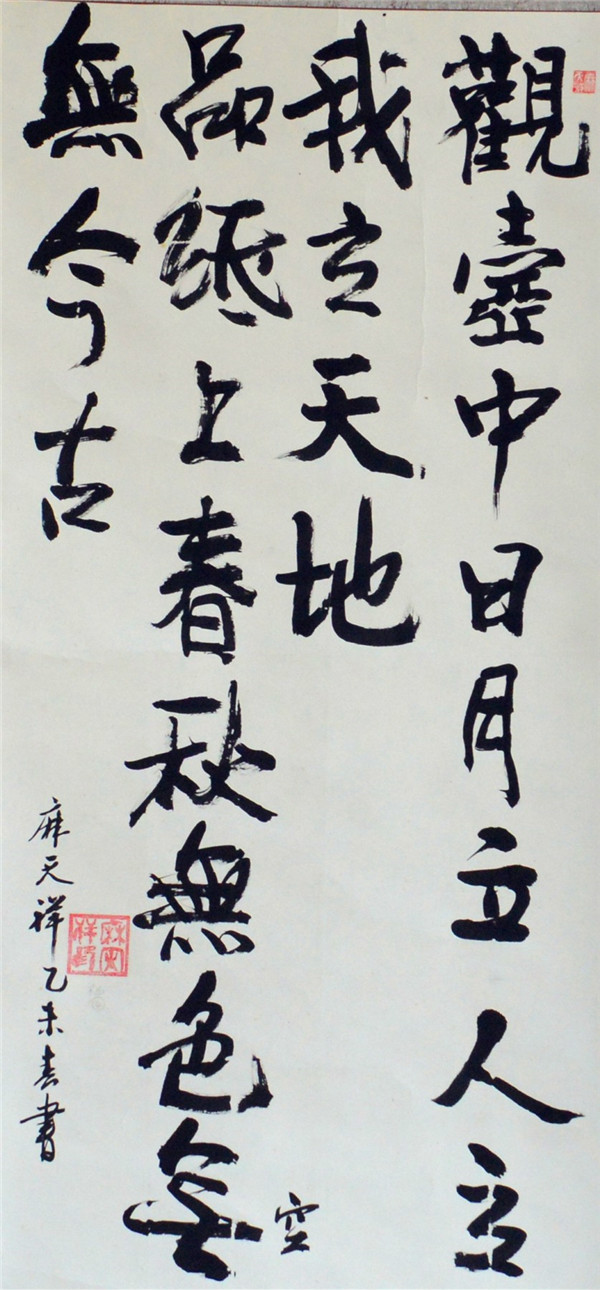 觀壺中日月立人立
我立天地
品紙上春秋無色無
空
無今古
麻天祥乙未春書